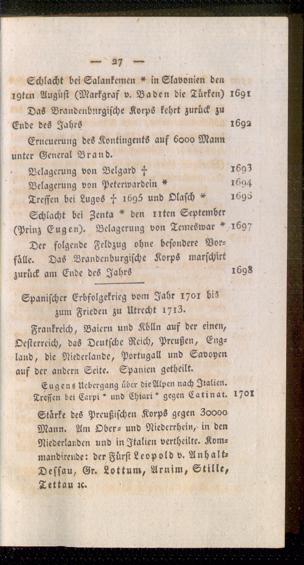 — 27 —
Schlacht bei Salankemen * in Slavonien den
19ten August (Markgraf v. Baden die Türken) 1691
Das Brandenburgische Korps kehrt zurück zu
Ende des Jahrs 1692
Erneuerung des Kontingents auf 6000 Mann
unter General Brand.
Belagerung von Belgard † 1693
Belagerung von Peterwardein * 1694
Treffen bei Lugos † 1695 und Olasch * 1696
Schlacht bei Zenta * den 11ten September
(Prinz Eugen). Belagerung von Temeswar * 1697
Der folgende Feldzug ohne besondere Vor-
fälle. Das Brandenburgische Korps marschirt
zurück am Ende des Jahrs 1698
Spanischer Erbfolgekrieg vom Jahr 1701 bis
zum Frieden zu Utrecht 1713.
Frankreich, Baiern und Kölln auf der einen,
Oesterreich, das Deutsche Reich, Preußen, Eng-
land, die Niederlande, Portugall und Savoyen
auf der andern Seite. Spanien getheilt.
Eugens Uebergang über die Alpen nach Italien.
Treffen bei Carpi * und Chiari * gegen Catinat. 1701
Stärke des Preußischen Korps gegen 30000
Mann. Am Ober- und Niederrhein, in den
Niederlanden und in Italien vertheilte. Kom-
mandirende: der Fürst Leopold v. Anhalt-
Dessau, Gr. Lottum, Arnim, Stille,
Tettau ꝛc.